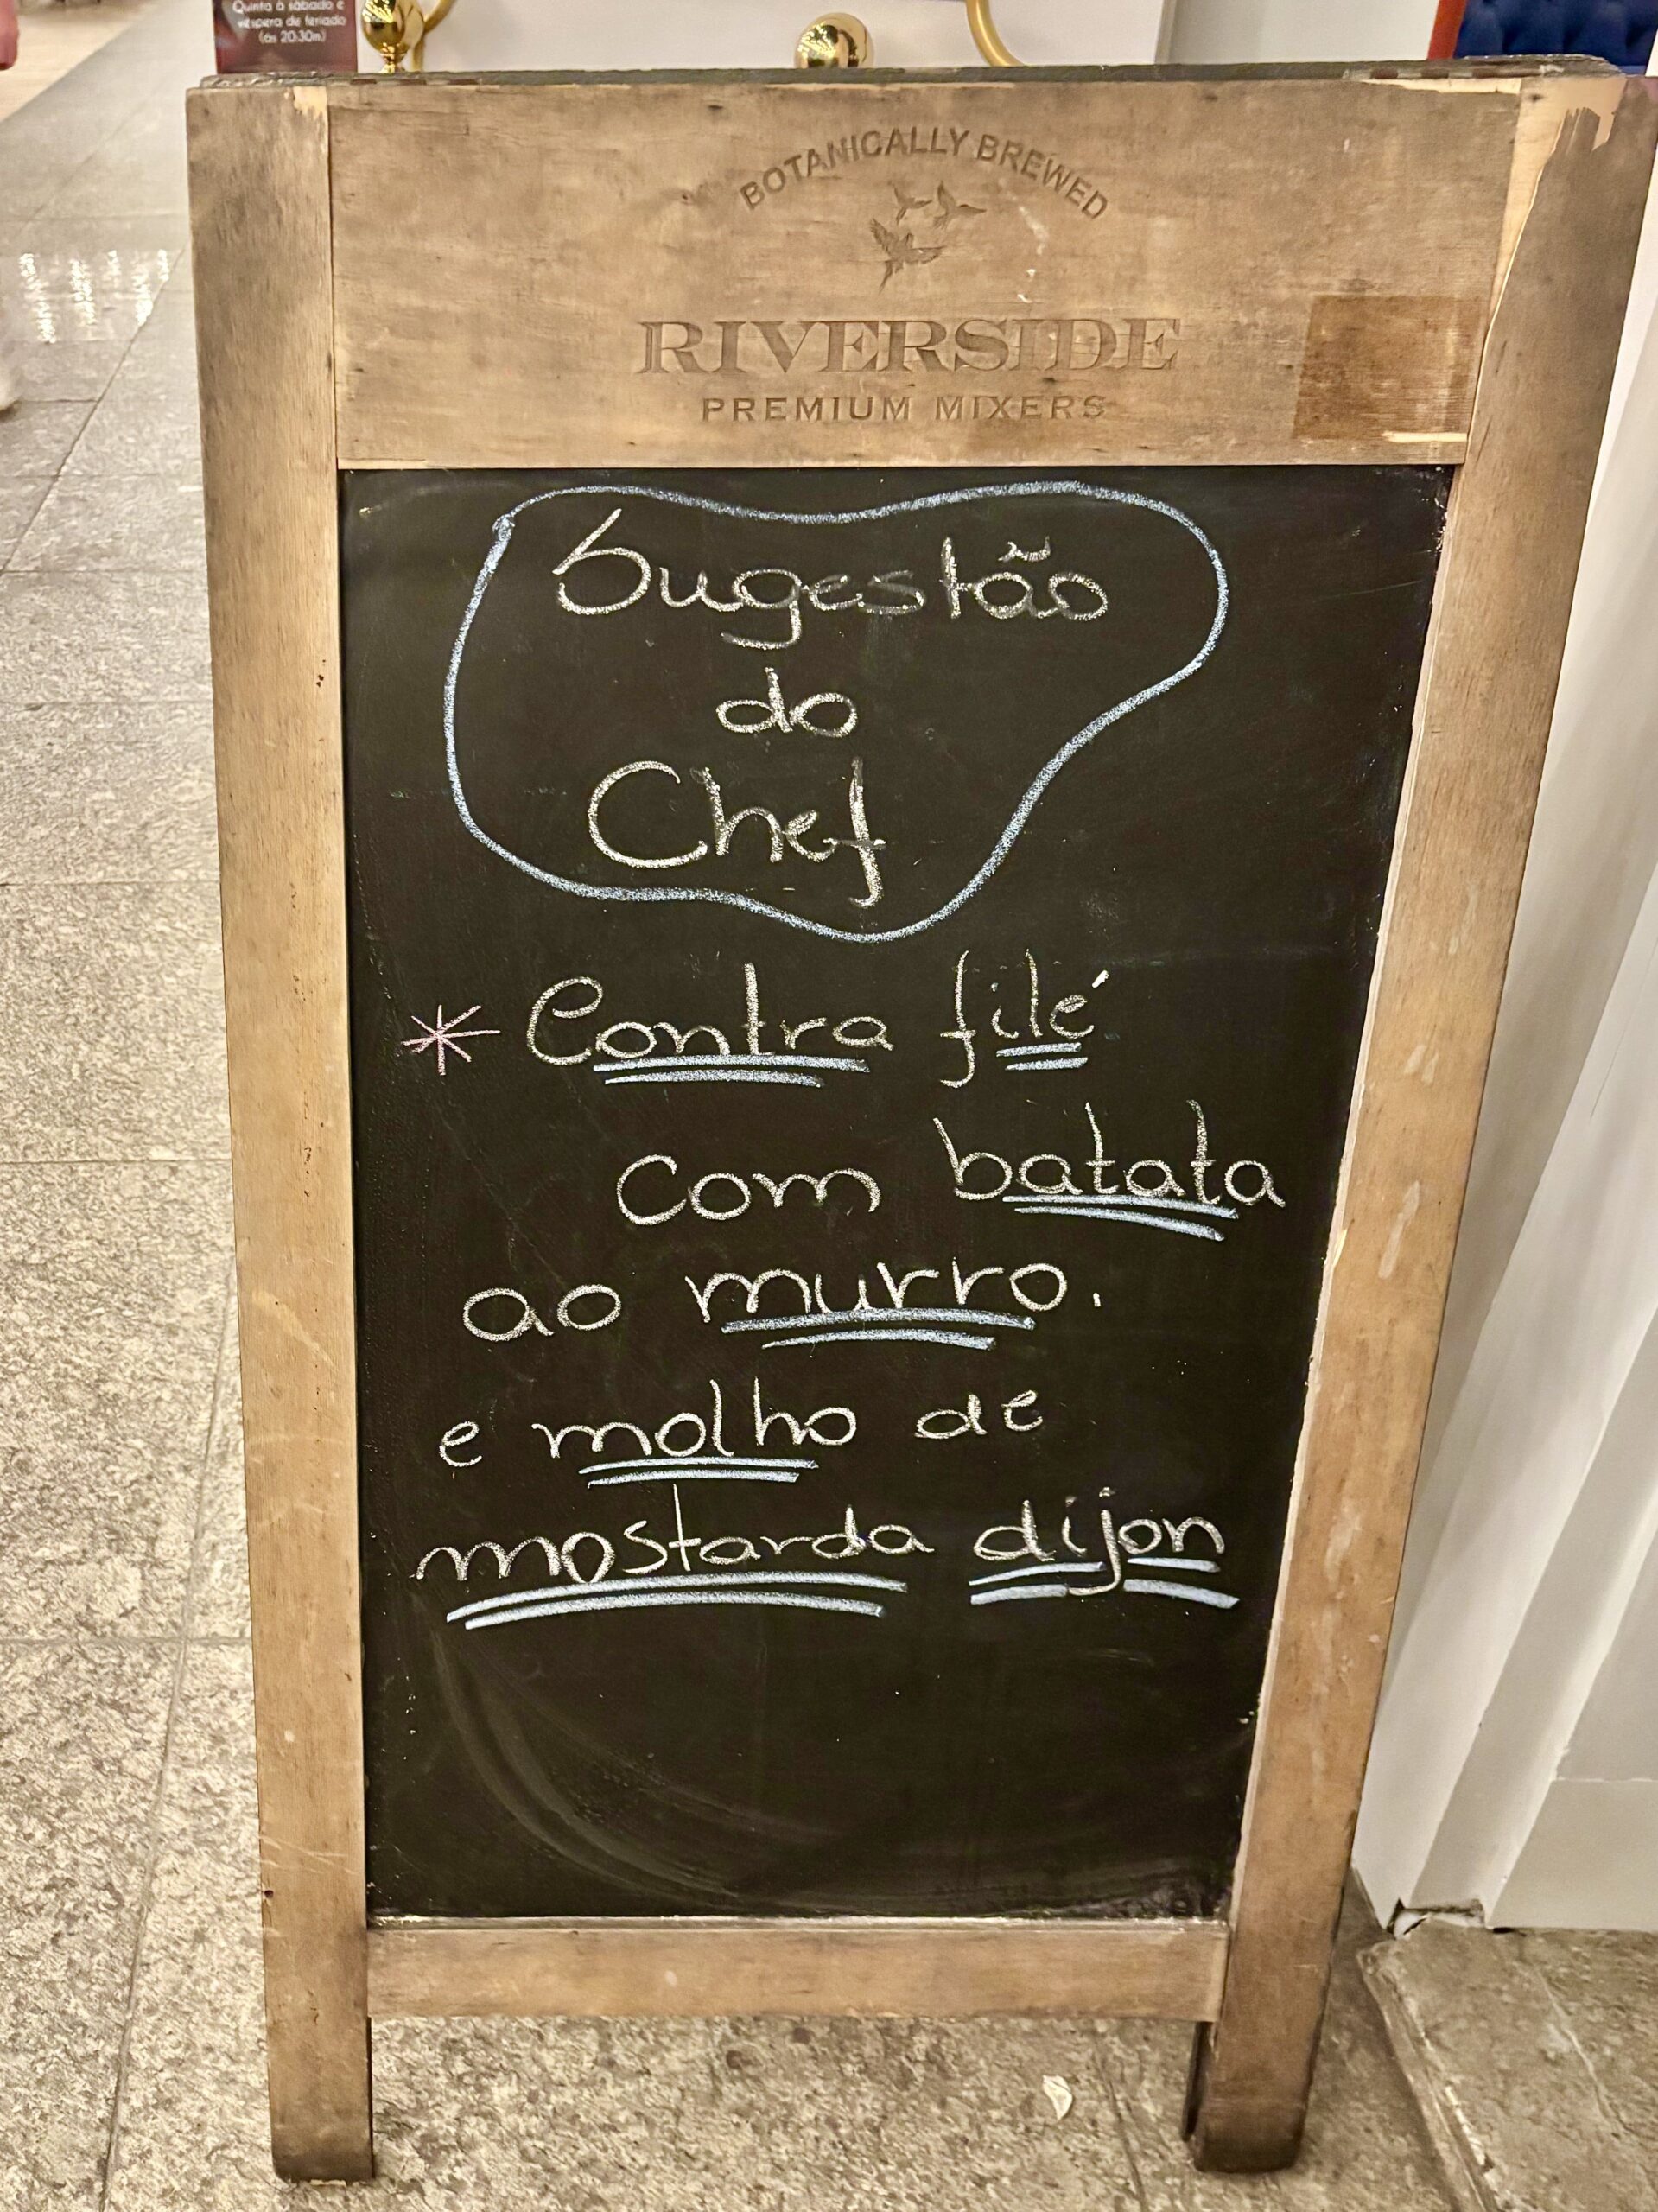 Quinta à sábado e
véspera de feriado
(às 20:30m)
BOTANICALLY BREWED
RIVERSIDE
PREMIUM MIXERS
Sugestão
do
Chef
* Contra filé
com batata
ao murro.
e molho de
mostarda dijon